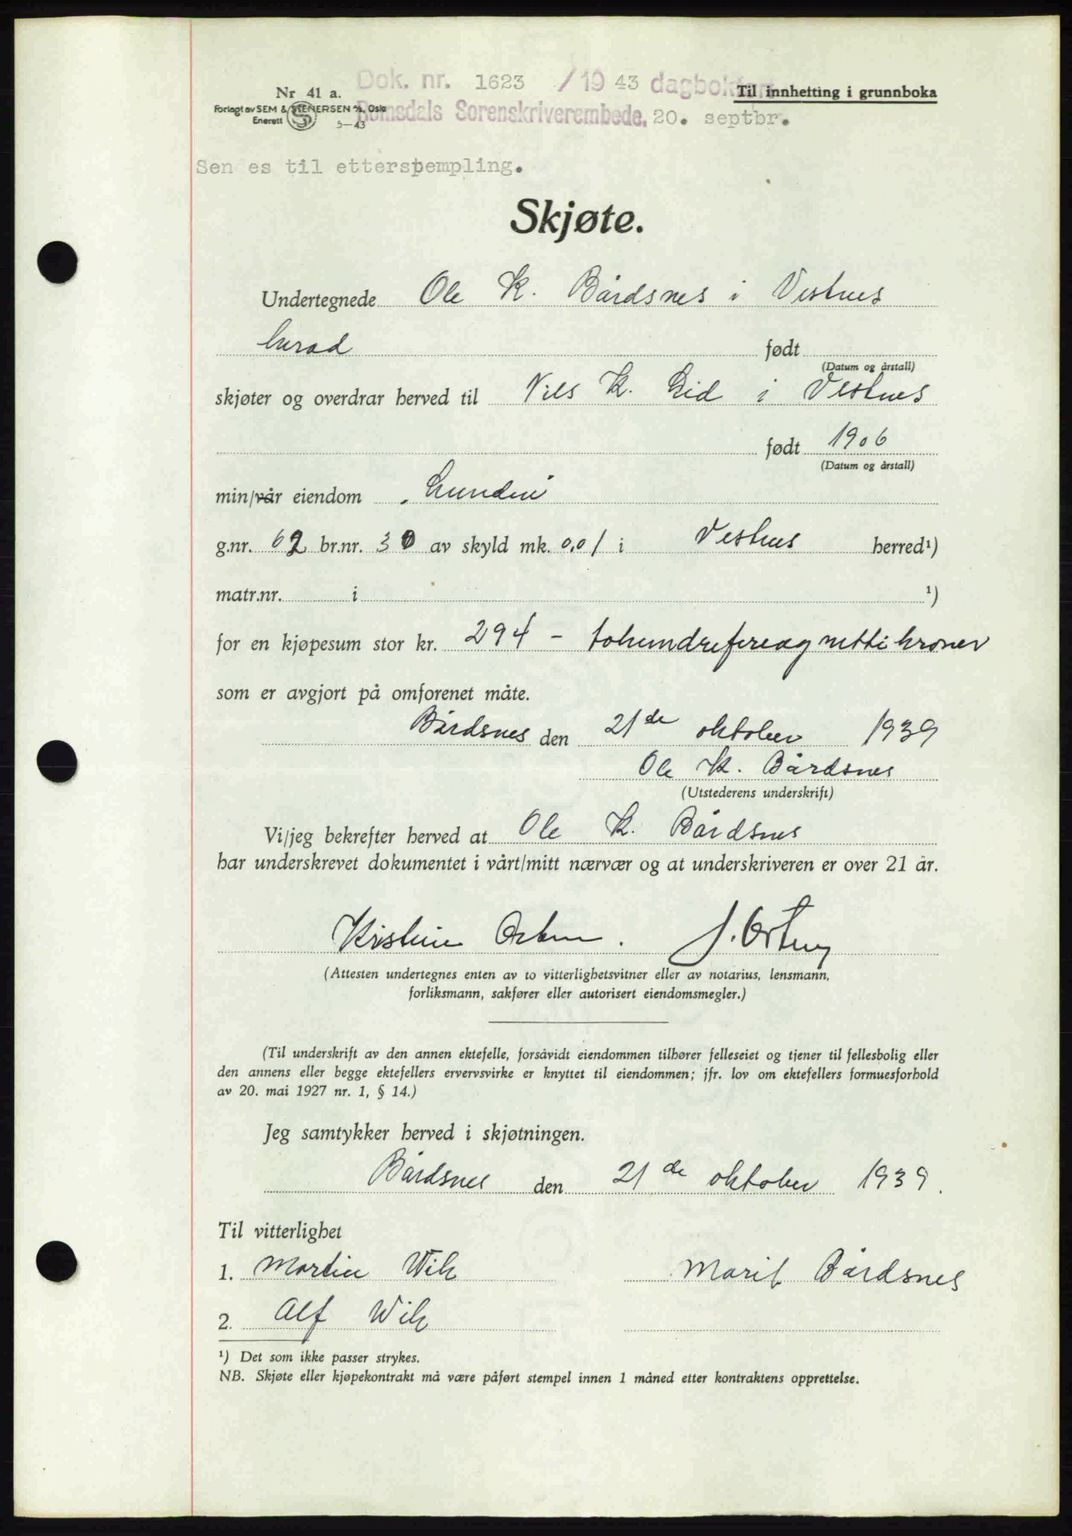 Dok. nr. 1623 / 19 43 dagbokført
Nr 41 a.
Til innhefting i grunnboka
Forlagt av SEM & STENERSEN A/S, Oslo
Enerett 5-43
Romsdals Sorenskriverembede, 20. septbr.
Sen es til etterstempling.
Skjøte.
Undertegnede Ole K. Bårdsnes i Vestnes
herad født
(Datum og årstall)
skjøter og overdrar herved til Nils K. Eid i Vestnes
født 1906
(Datum og årstall)
min/vår eiendom
g.nr. 62 br.nr. 30 av skyld mk. 0,01 i Vestnes herred¹)
matr.nr. i ¹)
for en kjøpesum stor kr. 294 - tohundrefireognitti kroner
som er avgjort på omforenet måte.
Bårdsnes den 21de oktober 1939
Ole K. Bårdsnes
(Utstederens underskrift)
Vi/jeg bekrefter herved at Ole K. Bårdsnes
har underskrevet dokumentet i vårt/mitt nærvær og at underskriveren er over 21 år.
Kristine
(Attesten undertegnes enten av to vitterlighetsvitner eller av notarius, lensmann,
forliksmann, sakfører eller autorisert eiendomsmegler.)
(Til underskrift av den annen ektefelle, forsåvidt eiendommen tilhører felleseiet og tjener til fellesbolig eller
den annens eller begge ektefellers ervervsvirke er knyttet til eiendommen; jfr. lov om ektefellers formuesforhold
av 20. mai 1927 nr. 1, § 14.)
Jeg samtykker herved i skjøtningen.
Bårdsnes den 21de oktober 1939.
Til vitterlighet
1. Martin Wik Marit Bårdsnes
2. Alf Wik
¹) Det som ikke passer strykes.
NB. Skjøte eller kjøpekontrakt må være påført stempel innen 1 måned etter kontraktens opprettelse.